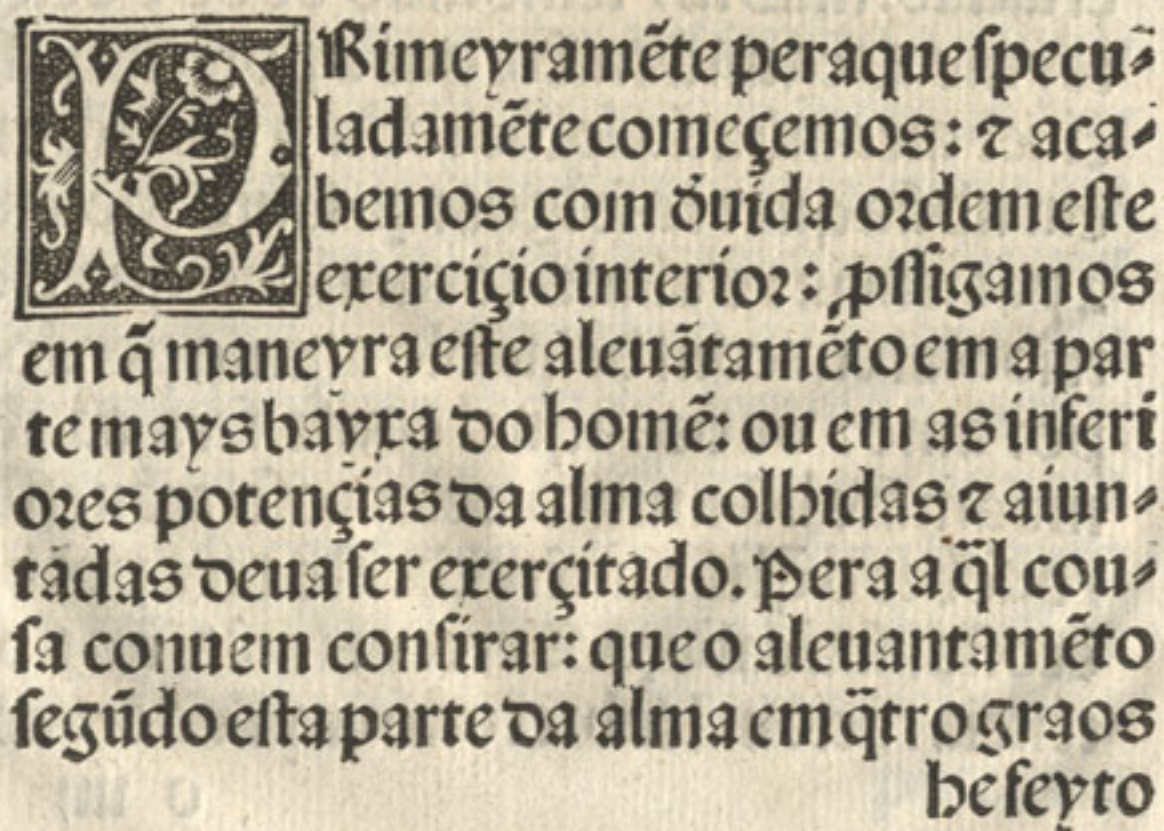 PRimeyramẽte peraque ſpecu⸗
ladamẽte começemos: ⁊ aca⸗
bemos com d̃uida oꝛdem eſte
exerciçio interioꝛ: ꝓſſigamos
em q̃ maneyra eſte aleuãtamẽto em a par
te mays bayxa do homẽ: ou em as inferi
oꝛes potençias da alma colhidas ⁊ aiun⸗
tadas deua ſer exerçitado. Pera a q̃l cou⸗
ſa conuem conſirar: que o aleuantamẽto
ſegũdo eſta parte da alma em q̃tro graos
he feyto